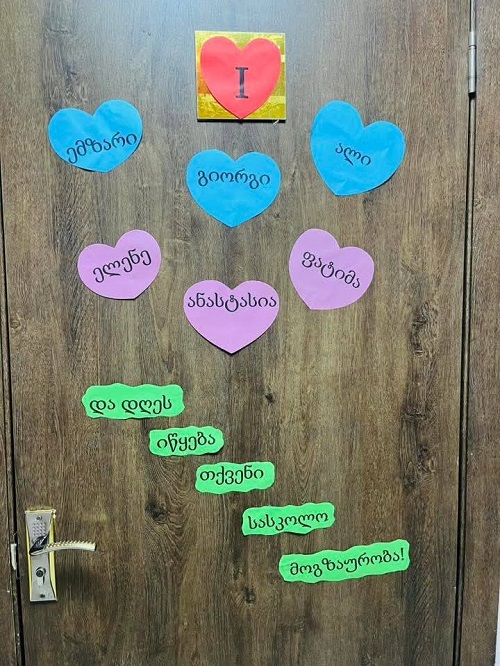 I
ემზარი
გიორგი
ალი
ელენე
ანასტასია
ფატიმა
და დღეს
იწყება
თქვენი
სასკოლო
მოგზაურობა!